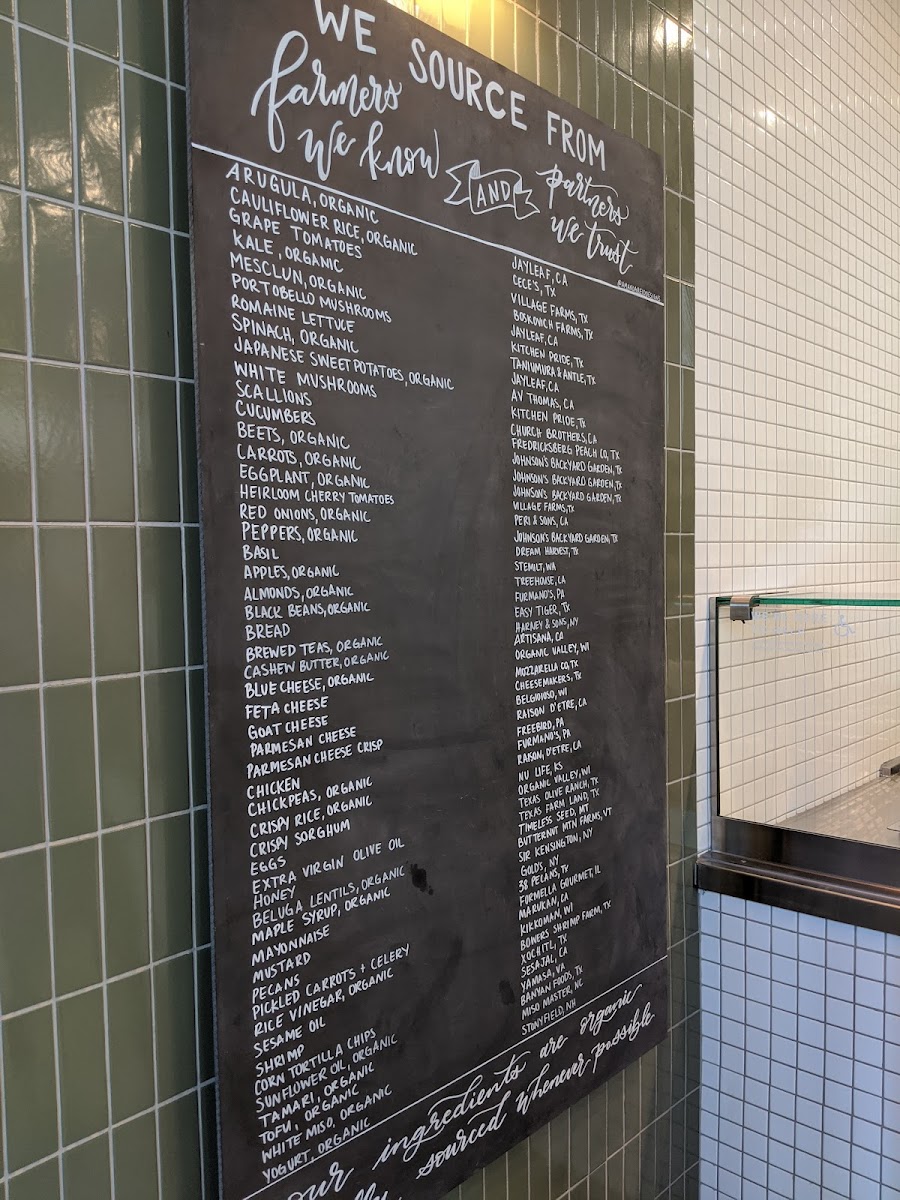 WE SOURCE FROM
farmers we know AND partners we trust
ARUGULA, ORGANIC JAYLEAF, CA
CAULIFLOWER RICE, ORGANIC CECE'S, TX
GRAPE TOMATOES VILLAGE FARMS, TX
KALE, ORGANIC BOSKOVICH FARMS, TX
MESCLUN, ORGANIC JAYLEAF, CA
PORTOBELLO MUSHROOMS KITCHEN PRIDE, TX
ROMAINE LETTUCE TANIUMURA & ANTLE, TX
SPINACH, ORGANIC JAYLEAF, CA
JAPANESE SWEET POTATOES, ORGANIC AV THOMAS, CA
WHITE MUSHROOMS KITCHEN PRIDE, TX
SCALLIONS CHURCH BROTHERS, CA
CUCUMBERS FREDRICKSBERG PEACH CO, TX
BEETS, ORGANIC JOHNSON'S BACKYARD GARDEN, TX
CARROTS, ORGANIC JOHNSON'S BACKYARD GARDEN, TX
EGGPLANT, ORGANIC JOHNSON'S BACKYARD GARDEN, TX
HEIRLOOM CHERRY TOMATOES VILLAGE FARMS, TX
RED ONIONS, ORGANIC PERI & SONS, CA
PEPPERS, ORGANIC JOHNSON'S BACKYARD GARDEN, TX
BASIL DREAM HARVEST, TX
APPLES, ORGANIC STEMILT, WA
ALMONDS, ORGANIC TREEHOUSE, CA
BLACK BEANS, ORGANIC FURMANO'S, PA
BREAD EASY TIGER, TX
BREWED TEAS, ORGANIC HARNEY & SONS, NY
CASHEW BUTTER, ORGANIC ARTISANA, CA
BLUE CHEESE, ORGANIC ORGANIC VALLEY, WI
FETA CHEESE MOZZARELLA CO, TX
GOAT CHEESE CHEESEMAKERS, TX
PARMESAN CHEESE BELGIOIOSO, WI
PARMESAN CHEESE CRISP RAISON D'ETRE, CA
CHICKEN FREEBIRD, PA
CHICKPEAS, ORGANIC FURMANO'S, PA
CRISPY RICE, ORGANIC RAISON, D'ETRE, CA
CRISPY SORGHUM NU LIFE, KS
EGGS ORGANIC VALLEY, WI
EXTRA VIRGIN OLIVE OIL TEXAS OLIVE RANCH, TX
HONEY TEXAS FARM LAND, TX
BELUGA LENTILS, ORGANIC TIMELESS SEED, MT
MAPLE SYRUP, ORGANIC BUTTERNUT MTN FARMS, VT
MAYONNAISE SIR KENSINGTON, NY
MUSTARD GOLD'S, NY
PECANS 38 PECANS, TX
PICKLED CARROTS + CELERY FORMELLA GOURMET, IL
RICE VINEGAR, ORGANIC MARUKAN, CA
SESAME OIL KIKKOMAN, WI
SHRIMP BOWERS SHRIMP FARM, TX
CORN TORTILLA CHIPS XOCHITL, TX
SUNFLOWER OIL, ORGANIC SESAJAL, CA
TAMARI, ORGANIC YAMASA, VA
TOFU, ORGANIC BANYAN FOODS, TX
WHITE MISO, ORGANIC MISO MASTER, NC
YOGURT, ORGANIC STONYFIELD, NH
our ingredients are organic
sourced whenever possible